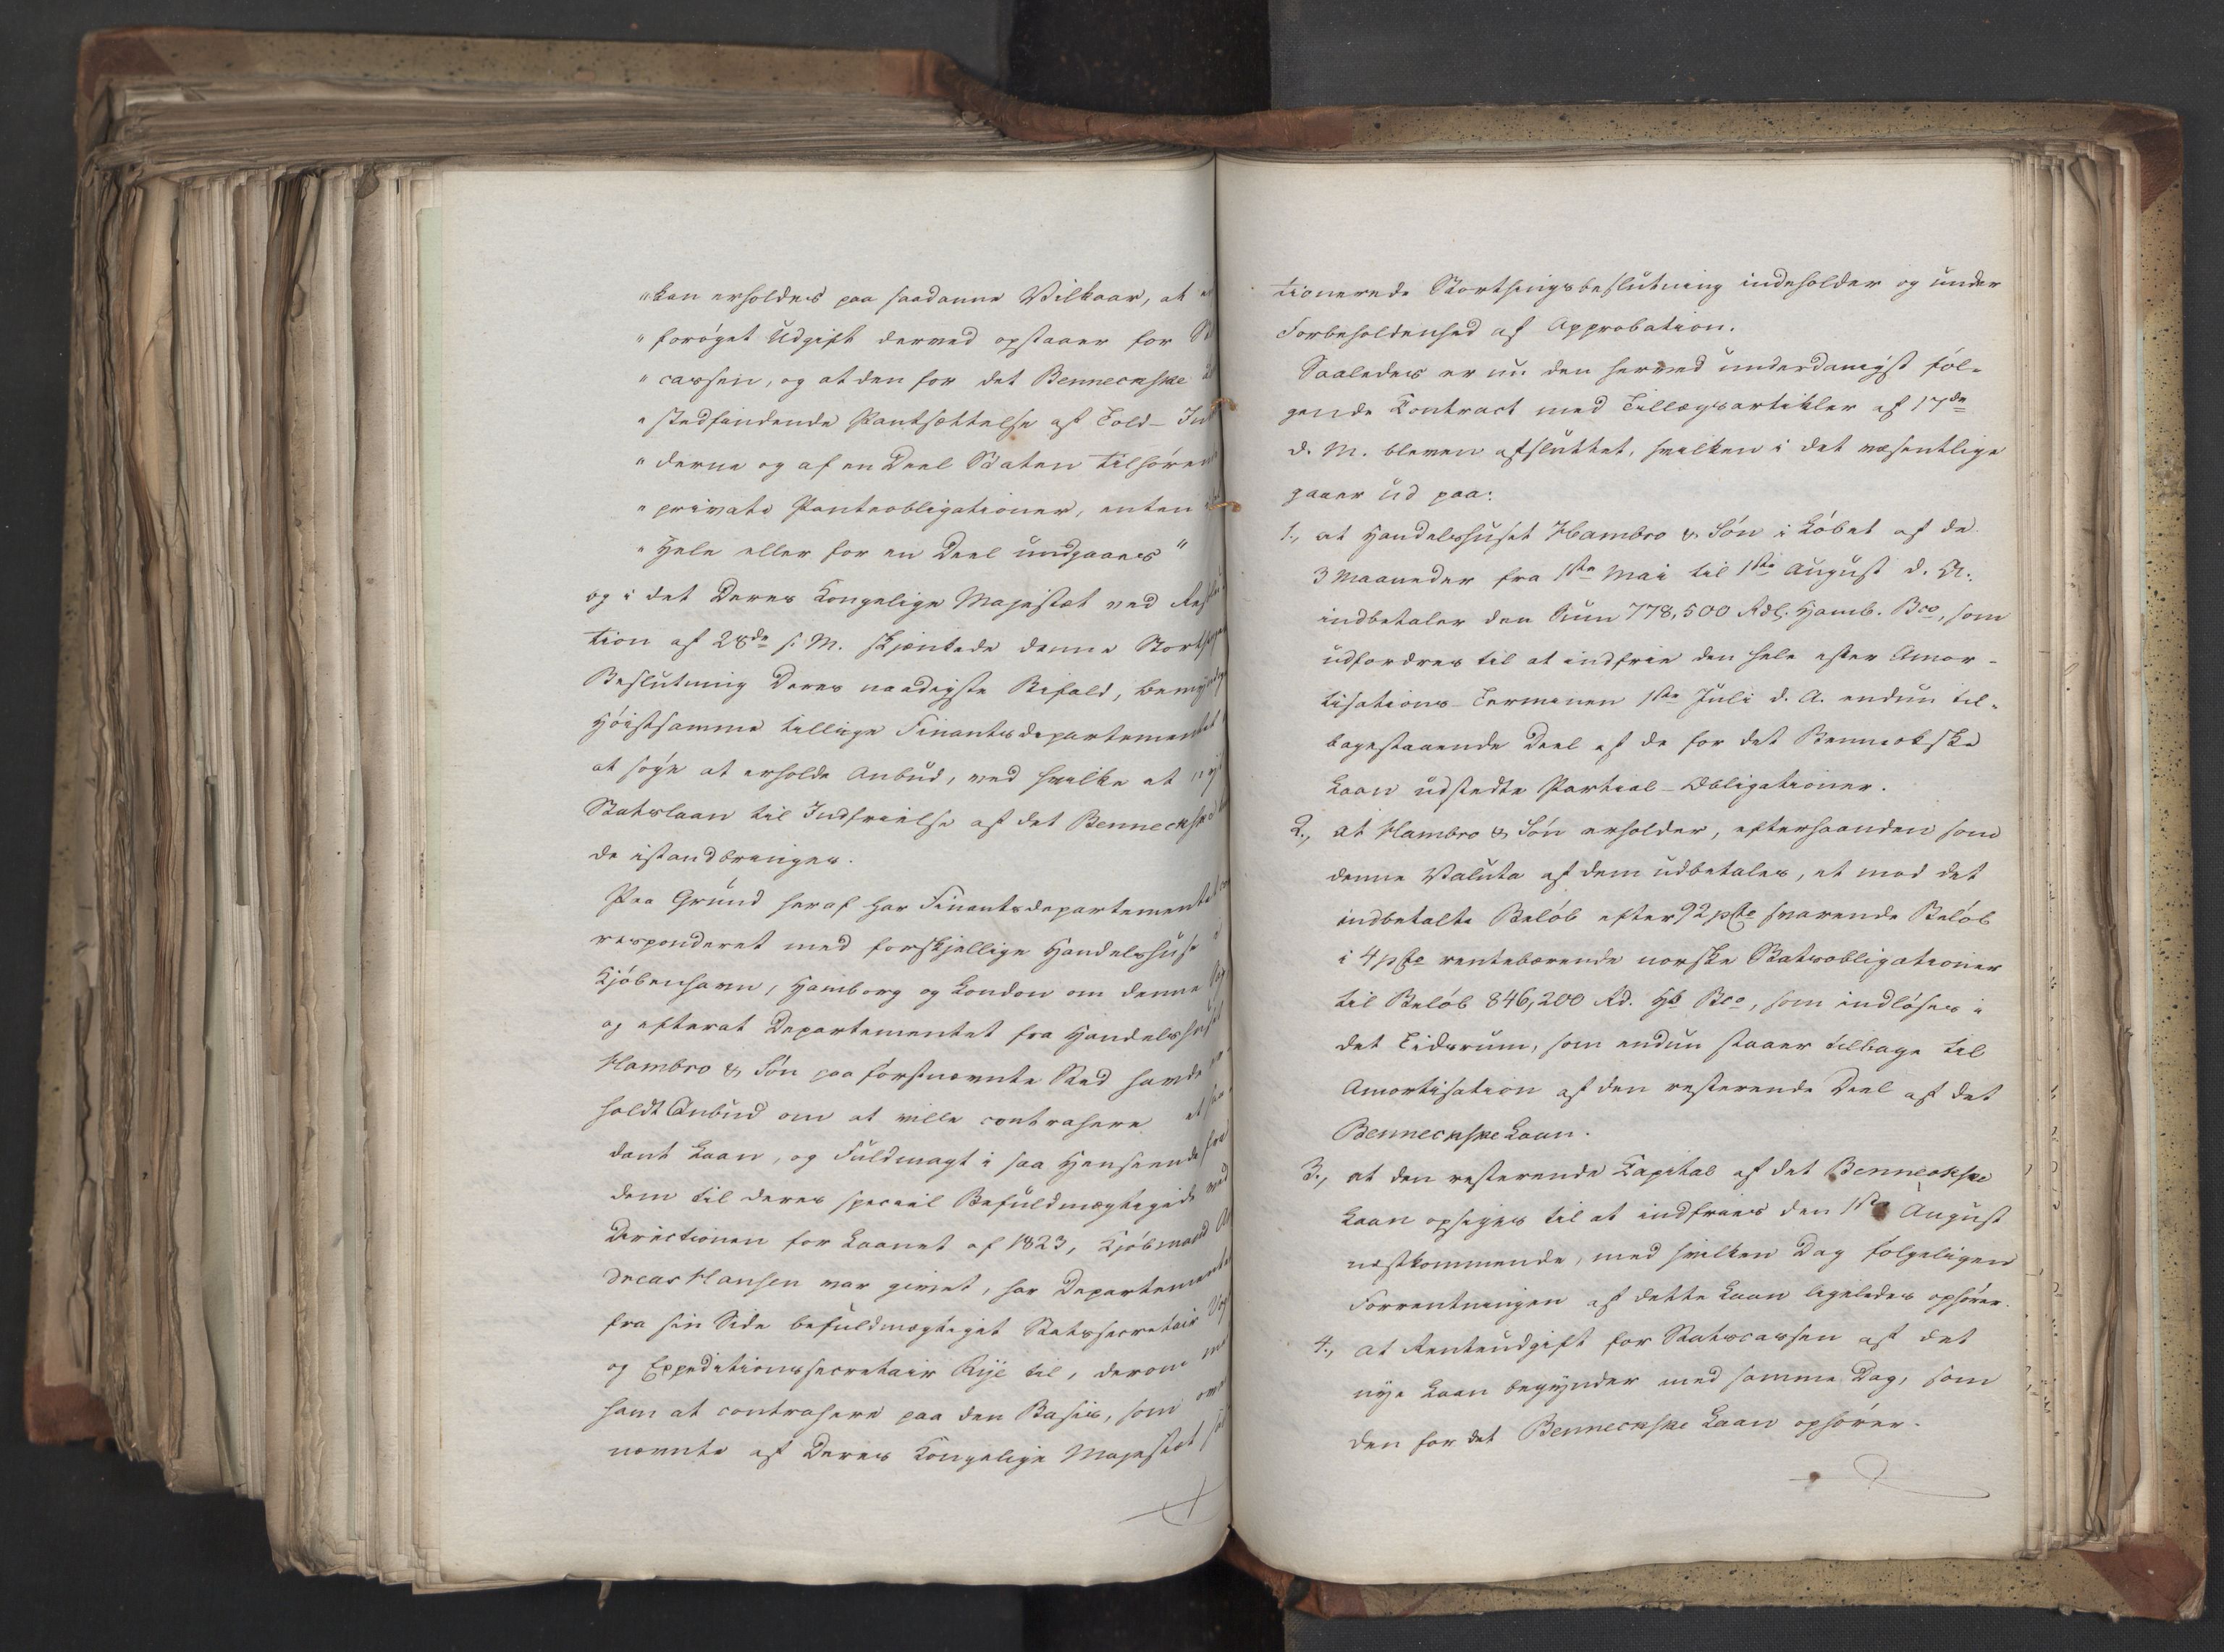 "kan erholdes paa saadanne Vilkaar, at
"forøget Udgift derved opstaaer for
"cassen, og at den for det Benneckske
"stedfindende Pantsættelse af Told-
"derne og af en Deel Staten tilhøren
"private Panteobligationer, enten
"Hele eller for en Deel undgaaes"
og i det Deres Kongelige Majestæt ved
tion af 28de s. M. skjænkede denne Storth
Beslutning Deres naadigste Bifald, bemyndig
Høistsamme tillige Finantsdepartementet
at søge at erholde Anbud, ved hvilke et nyt
Statslaan til Indfrielse af det Benneckske
de istandbringes.
Paa Grund heraf har Finantsdepartementet
responderet med forskjellige Handelshuse i
Kjøbenhavn, Hamborg og London om denne
og efterat Departementet fra Handelshuset
Hambro & Søn paa førstnævnte Sted havde
holdt Anbud om at ville contrahere et
dant Laan, og Fuldmagt i saa Henseende fra
dem til deres special Befuldmægtigede ved
Directionen for Laanet af 1823, Kjøbmand An
dreas Hansen var givet, har Departementet
fra sin Side befuldmægtiget Statssecretair Vogt
og Expeditionssecretair Rye til, derom med
ham at contrahere paa den Basis, som
nævnte af Deres Kongelige Majestæt
tionerede Storthingsbeslutning indeholder og under
Forbeholdenhed af Approbation.
Saaledes er nu den herved underdanigst føl-
gende Contract med Tillægsartikler af 17de
d. M. bleven afsluttet, hvilken i det væsentlige
gaaer ud paa:
1., at Handelshuset Hambro & Søn i Løbet af de
3 Maaneder fra 1ste Mai til 1ste August d. A.
indbetaler den Sum 778,500 Rdl. Hamb. Bco, som
udfordres til at indfrie den hele efter Amor-
tisations-Terminen 1ste Juli d. A. endnu til-
bagestaaende Deel af de for det Benneckske
Laan udstedte Partial-Obligationer.
2., at Hambro & Søn erholder, efterhaanden som
denne Valuta af dem udbetales, et mod det
indbetalte Beløb efter 92 pCto svarende Beløb
i 4 pCto rentebærende norske Statsobligationer
til Beløb 846,200 Rd. Hb Bco, som indløses i
det Tidsrum, som endnu staaer tilbage til
Amortisation af den resterende Deel af det
Benneckske Laan.
3., at den resterende Capital af det Benneckske
Laan opsiges til at indfries den 1ste August
næstkommende, med hvilken Dag følgeligen
Forrentningen af dette Laan ligeledes ophører.
4., at Renteudgift for Statscassen af det
nye Laan begynder med samme Dag, som
den for det Benneckske Laan ophører.